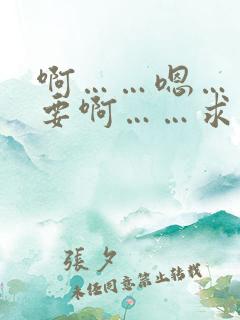 啊……嗯…
要啊……求
張夕
未經同意禁止轉載